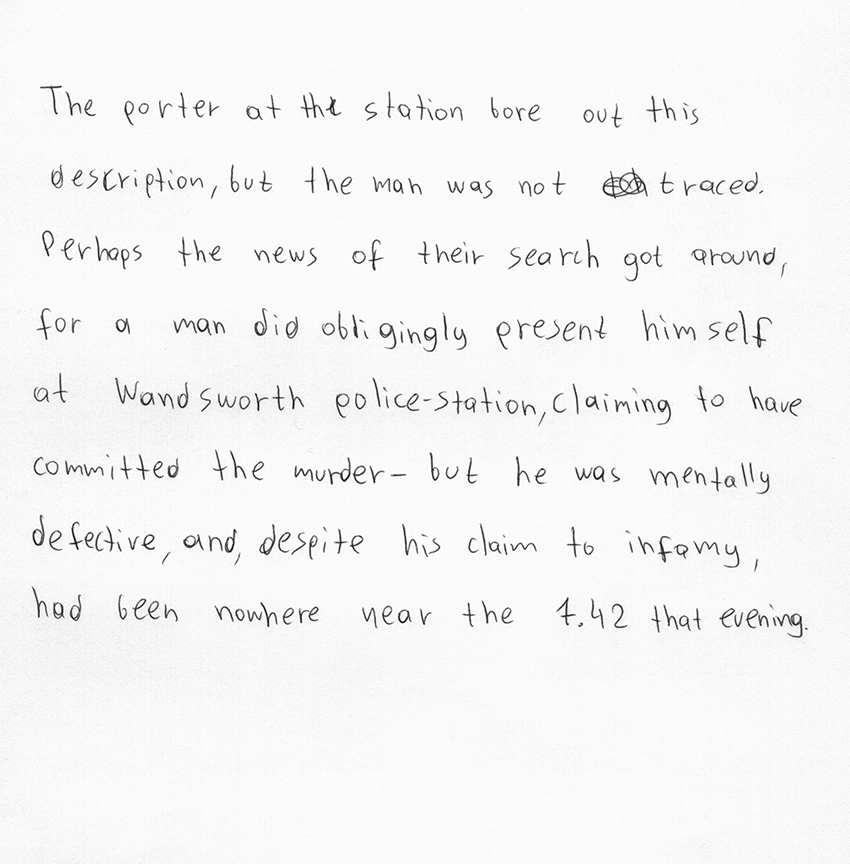 The porter at the station bore out this
description, but the man was not traced.
Perhaps the news of their search got around,
for a man did obligingly present himself
at Wandsworth police-station, claiming to have
committed the murder – but he was mentally
defective, and, despite his claim to infamy,
had been nowhere near the 7.42 that evening.